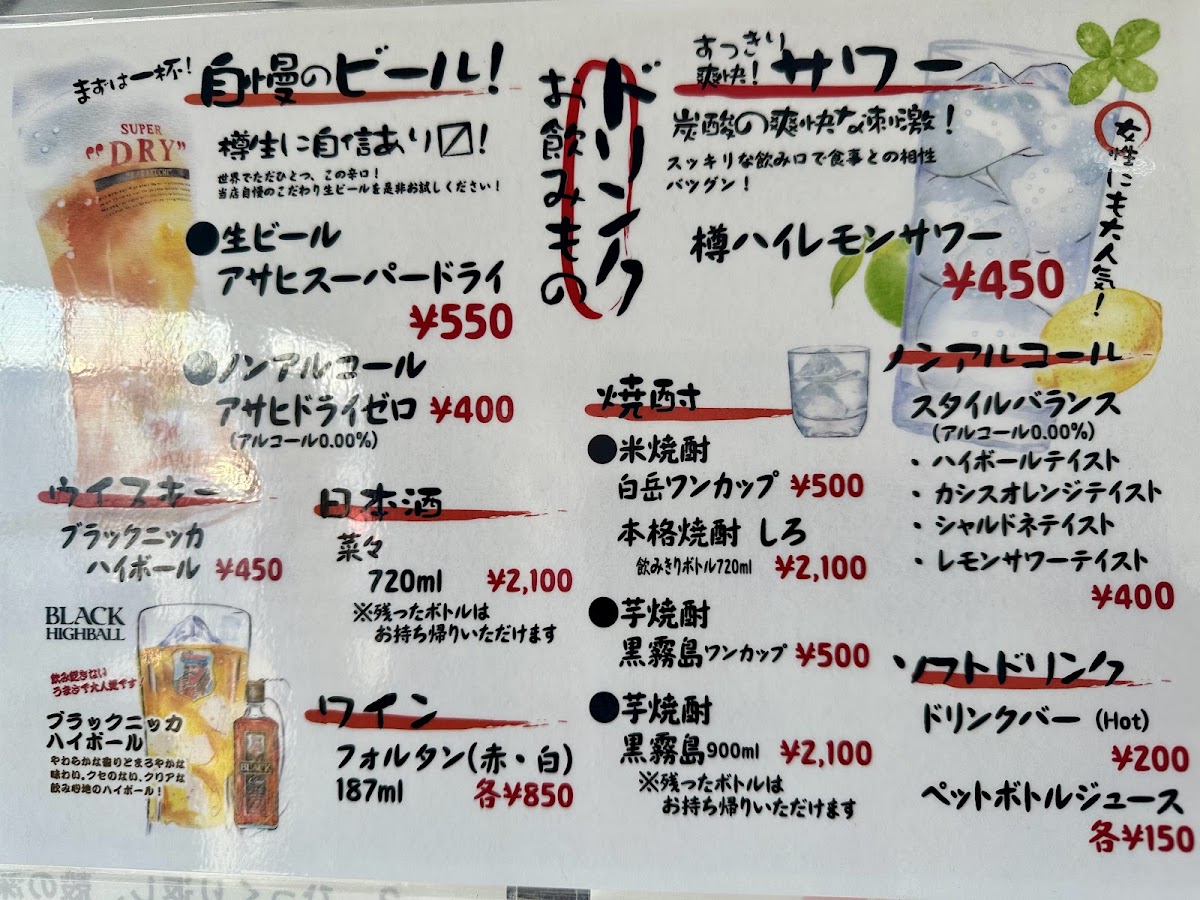 まずは一杯!
自慢のビール!
樽生に自信あり〼!
世界でただひとつ、この辛口!
当店自慢のこだわり生ビールを是非お試しください!
SUPER
"DRY"
●生ビール
アサヒスーパードライ
¥550
●ノンアルコール
アサヒドライゼロ ¥400
(アルコール0.00%)
ウイスキー
ブラックニッカ
ハイボール ¥450
BLACK
HIGHBALL
飲み飽きない
うまさで大人気です
ブラックニッカ
ハイボール
やわらかな香りとまろやかな
味わい、クセのない、クリアな
飲み心地のハイボール!
BLACK
日本酒
菜々
720ml ¥2,100
※残ったボトルは
お持ち帰りいただけます
ワイン
フォルタン(赤・白)
187ml 各¥850
ドリンク
お飲みもの
すっきり
爽快!
サワー
炭酸の爽快な刺激!
スッキリな飲み口で食事との相性
バツグン!
女性にも大人気!
樽ハイレモンサワー
¥450
焼酎
●米焼酎
白岳ワンカップ ¥500
本格焼酎 しろ
飲みきりボトル720ml ¥2,100
●芋焼酎
黒霧島ワンカップ ¥500
●芋焼酎
黒霧島900ml ¥2,100
※残ったボトルは
お持ち帰りいただけます
ノンアルコール
スタイルバランス
(アルコール0.00%)
・ハイボールテイスト
・カシスオレンジテイスト
・シャルドネテイスト
・レモンサワーテイスト
¥400
ソフトドリンク
ドリンクバー (Hot)
¥200
ペットボトルジュース
各¥150